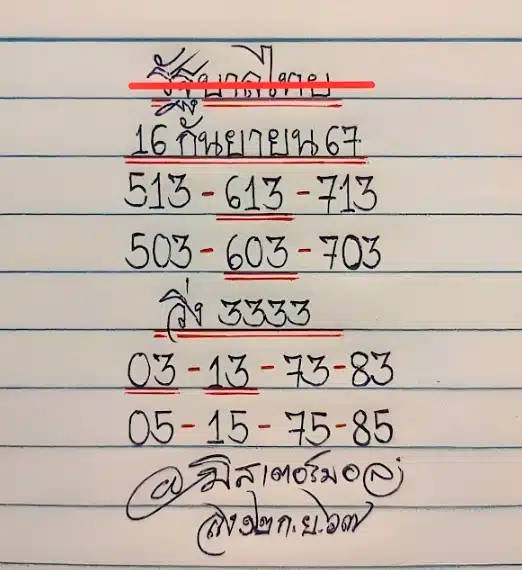 รัฐบาลไทย
16 กันยายน 67
513-613-713
503-603-703
วิ่ง 3333
03-13-73-83
05-15-75-85
@มิสเตอร์มอล
ลง๑๒ก.ย.๖๗